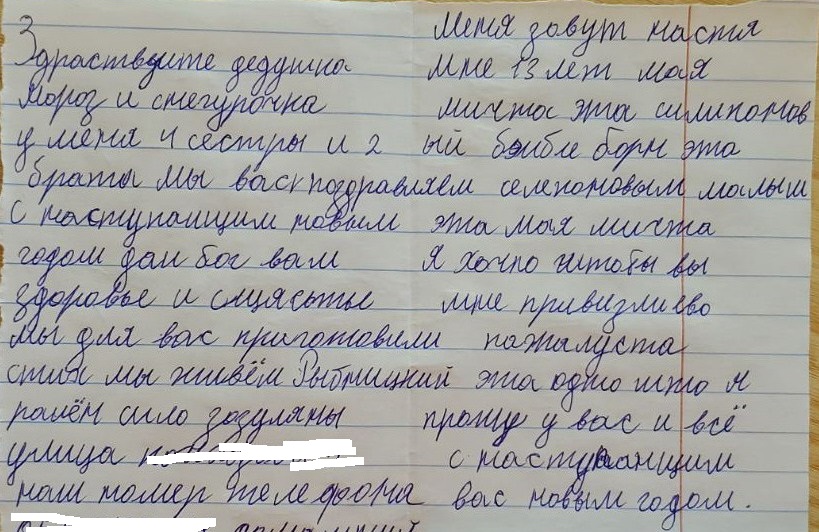 Здраствуите дедушка
Мороз и снегурочка
у меня 4 сестры и 2
браты мы васк поздравляем
с наступающим новым
годом дай бог вам
здоровье и сщясьтье
мы для вас приготовили
стих мы живём Рыбницкий
раиён сило зозуляны
улица
наш номер телефона
Меня зовут настя
мне 13 лет мая
мичта эта силиконов
ый бэибе борн эта
селеконовым малыш
эта мая мичта
Я хочю штобы вы
мне привизли ево
пажалуста
эта одно што я
прошу у вас и всё
с наступающим
вас новым годом.